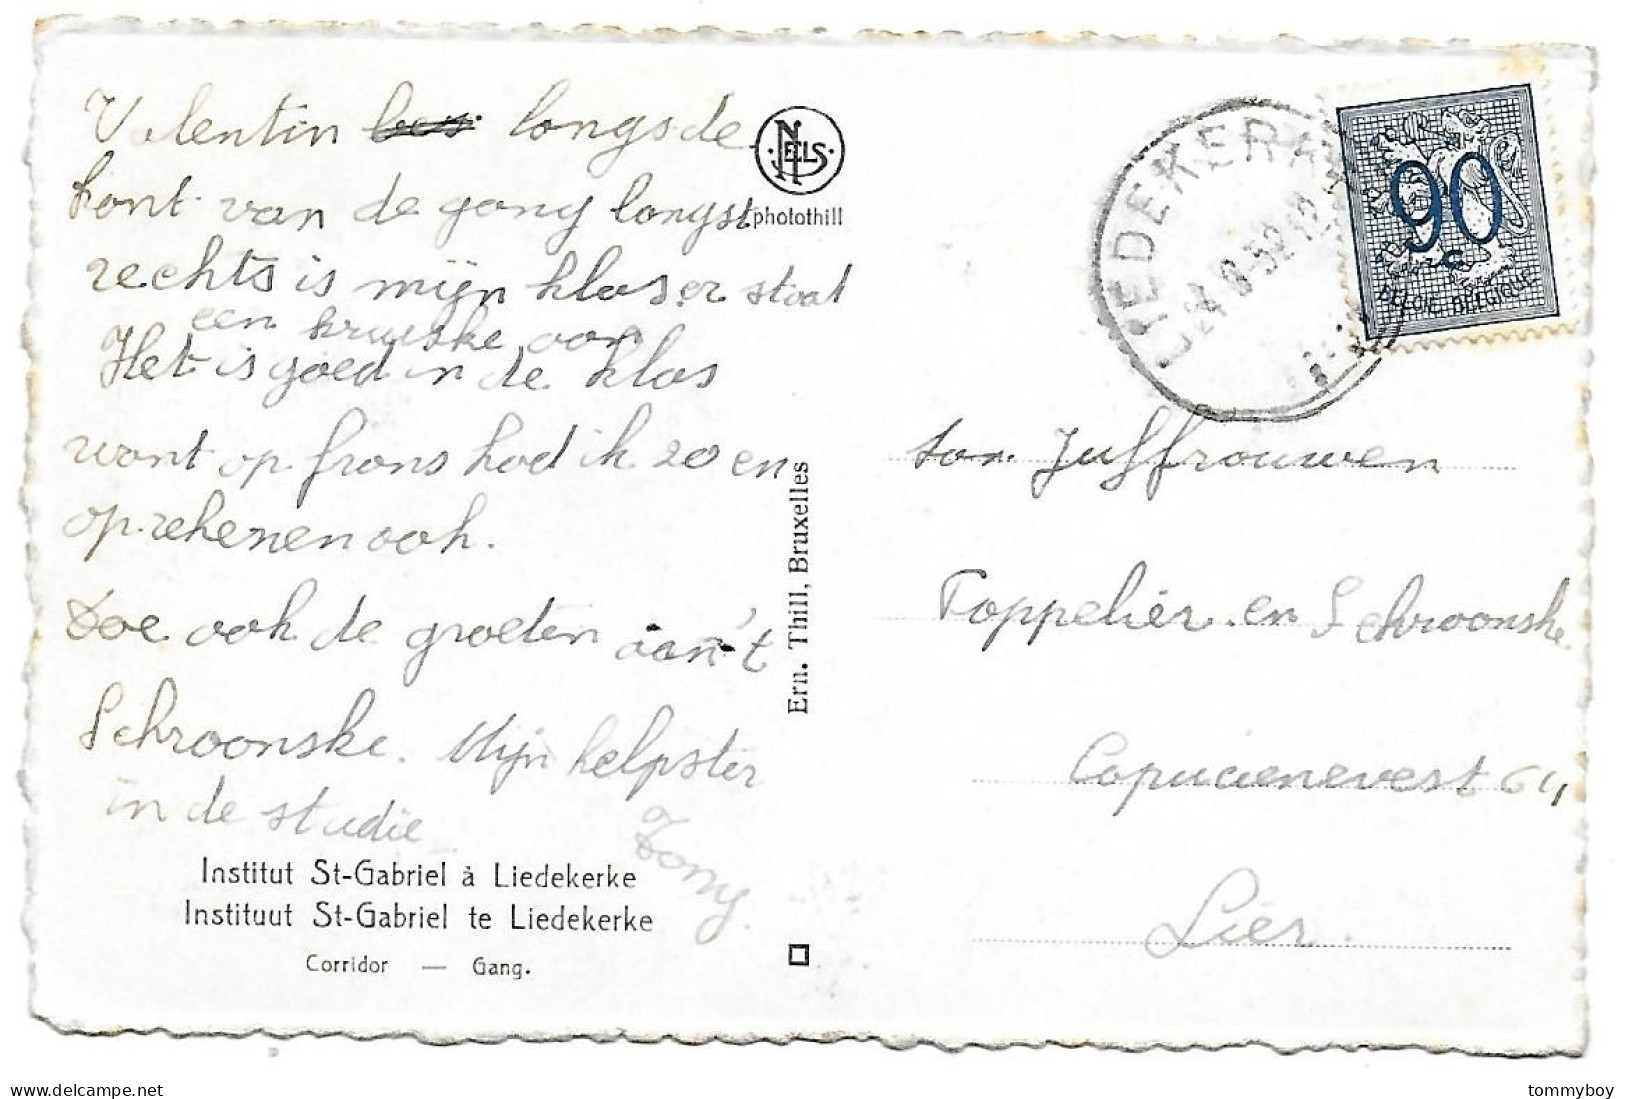 Valentin langs de
kant van de gang langst
rechts is mijn klas er staat
een kruiske aan
Het is goed in de klas
want op frans had ik 20 en
op rekenen ook.
Doe ook de groeten aan't
Schroonske. Mijn helpster
in de studie
Tony.
Institut St-Gabriel à Liedekerke
Instituut St-Gabriel te Liedekerke
Corridor — Gang.
NELS
photothill
Ern. Thill, Bruxelles
LIEDEKERKE
90
c
BELGIE BELGIQUE
Juffrouwen
Toppelier en Schroonske
Capucienevest 64
Lier.
tommyboy